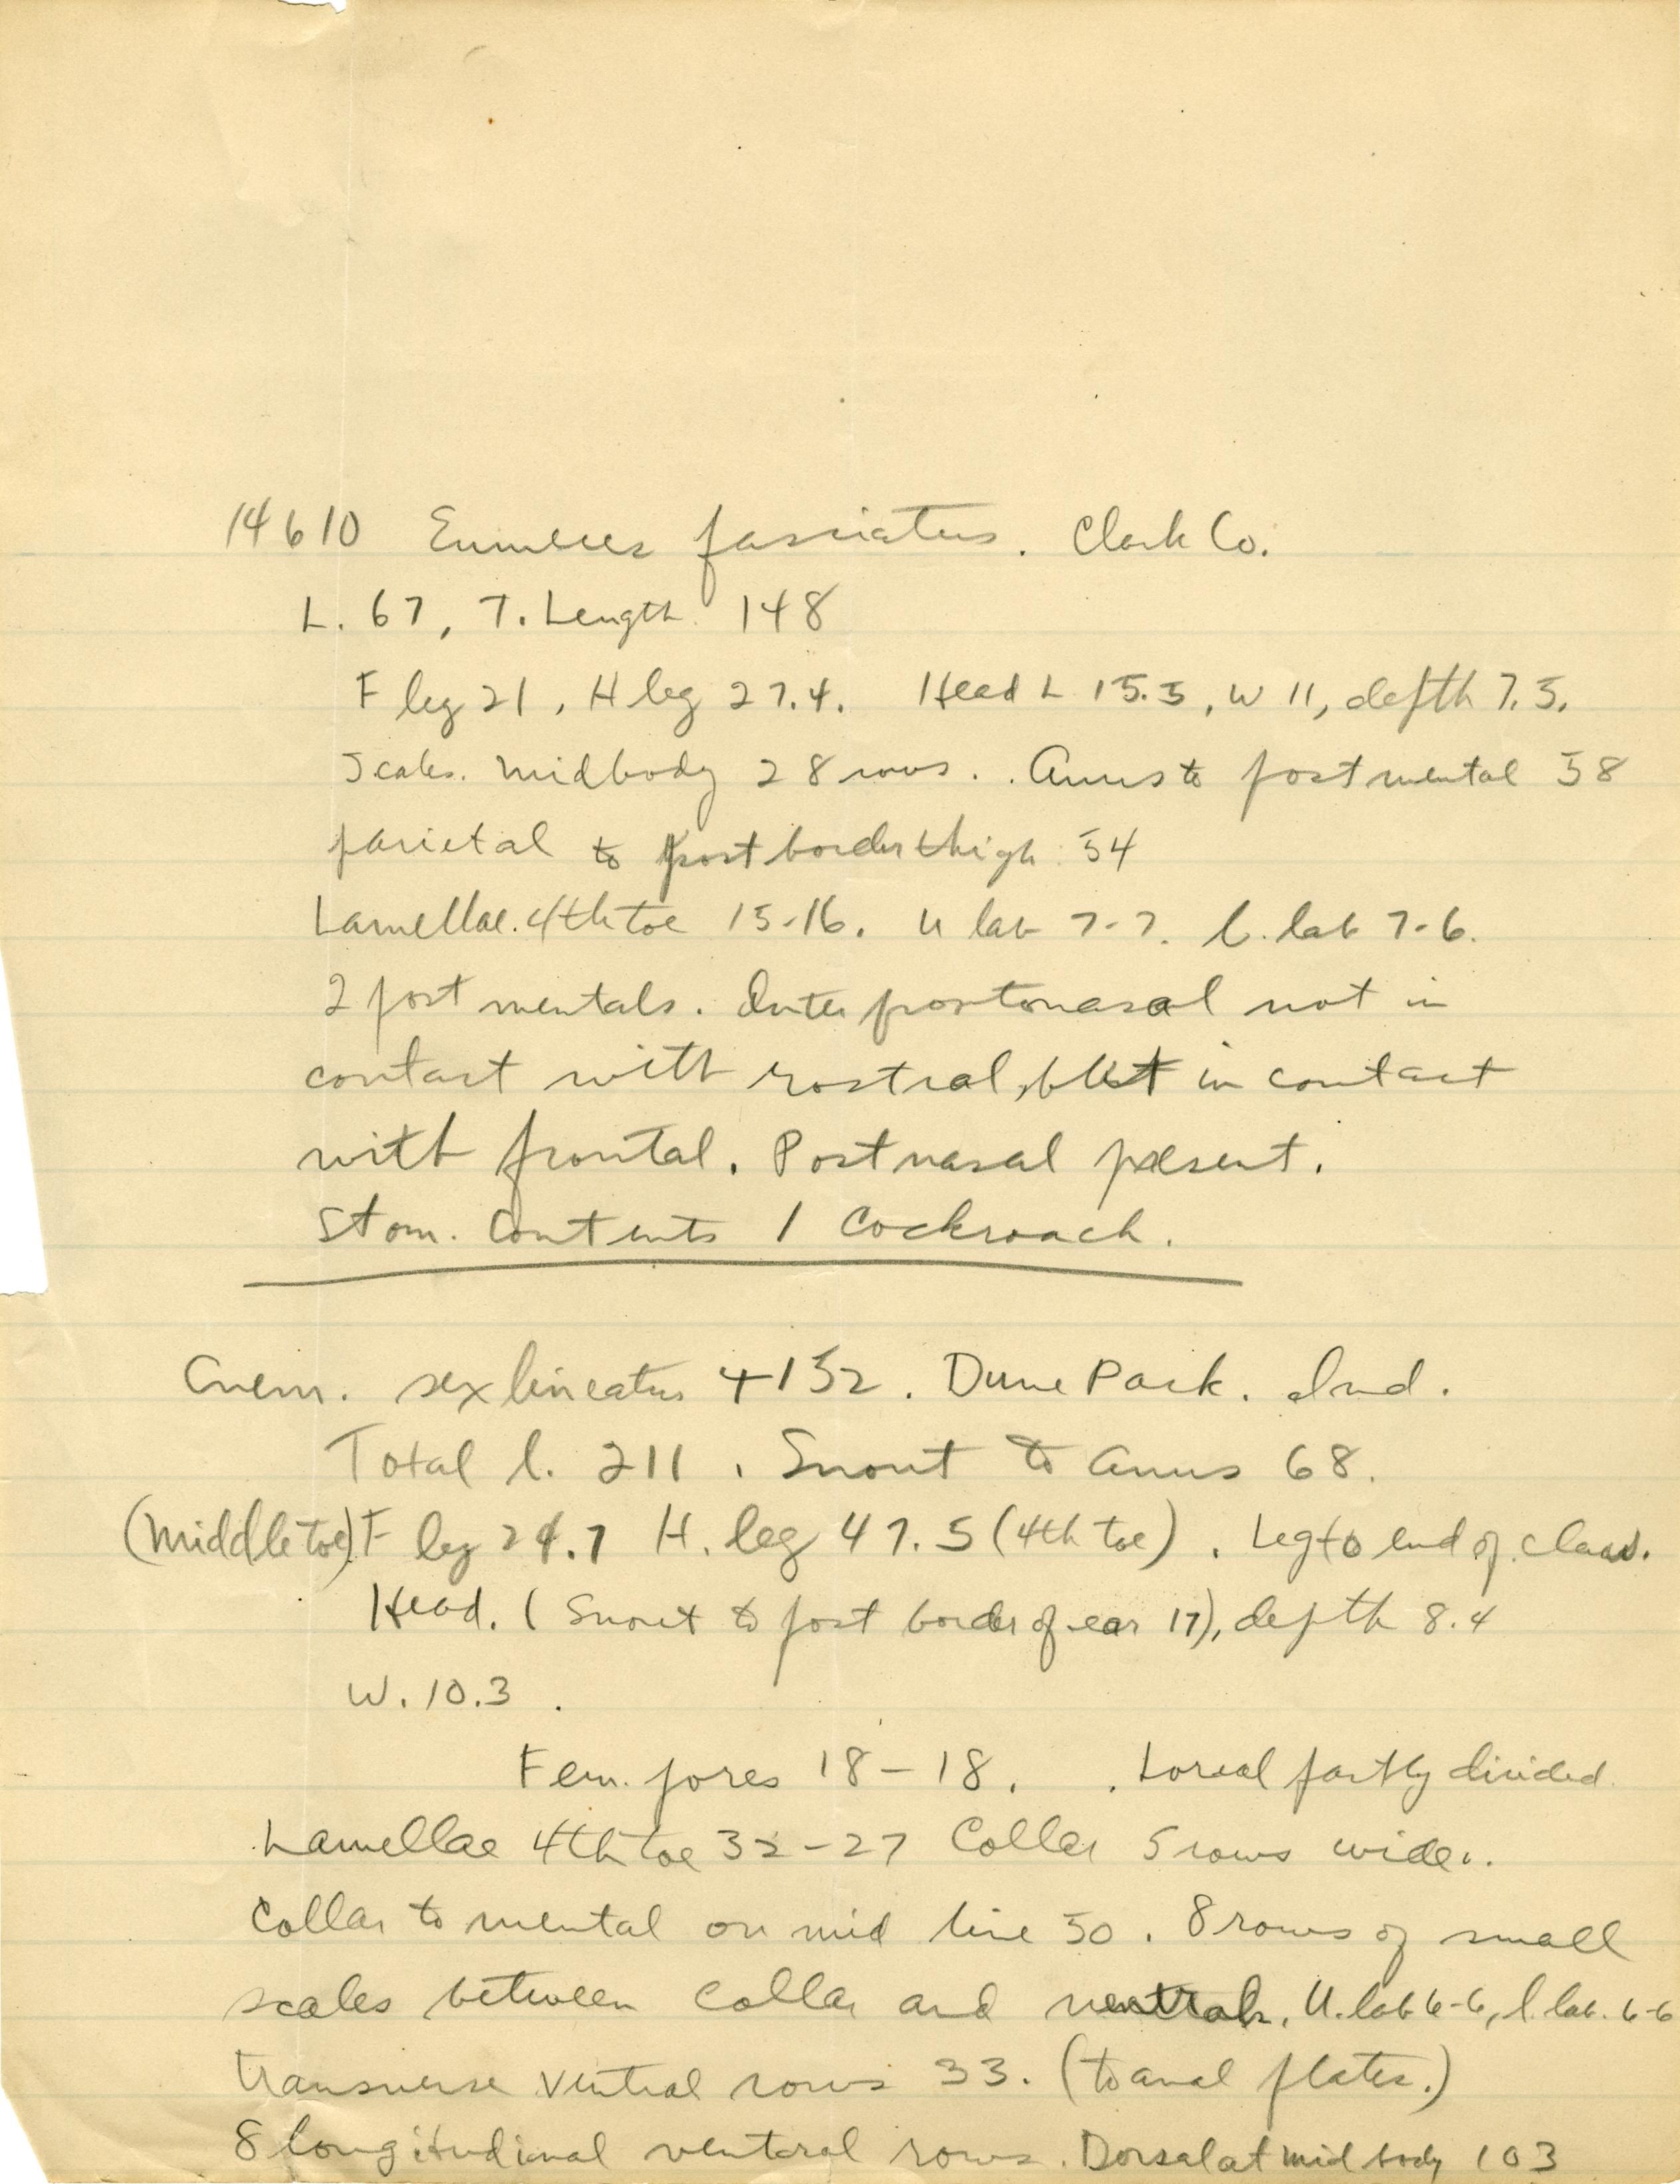 14610 Eumeces fasciatus. Clark Co.
L. 67, T. Length 148
F leg 21, H leg 27.4. Head L 15.5, W 11, depth 7.5.
Scales. midbody 28 rows. . Anus to postmental 58
parietal to post border thigh 54
Lamellae. 4th toe 15-16. U lab 7-7. l. lab 7-6.
2 post mentals. Inter frontonasal not in
contact with rostral, but in contact
with frontal. Postnasal present.
Stom. Contents 1 Cockroach.
Cnem. sexlineatus 4152. Dune Park. Ind.
Total l. 211. Snout to anus 68.
(Middle toe) F leg 24.7 H. leg 47.5 (4th toe). Leg to end of claw.
Head. (Snout to post border of ear 17), depth 8.4
W. 10.3.
Fem. pores 18-18. . Loreal partly divided
Lamellae 4th toe 32-27 Collar 5 rows wide.
Collar to mental on mid line 50. 8 rows of small
scales between collar and ventrals. U. lab 6-6, l. lab. 6-6
transverse ventral rows 33. (to anal plates.)
8 longitudinal ventral rows. Dorsal at midbody 103